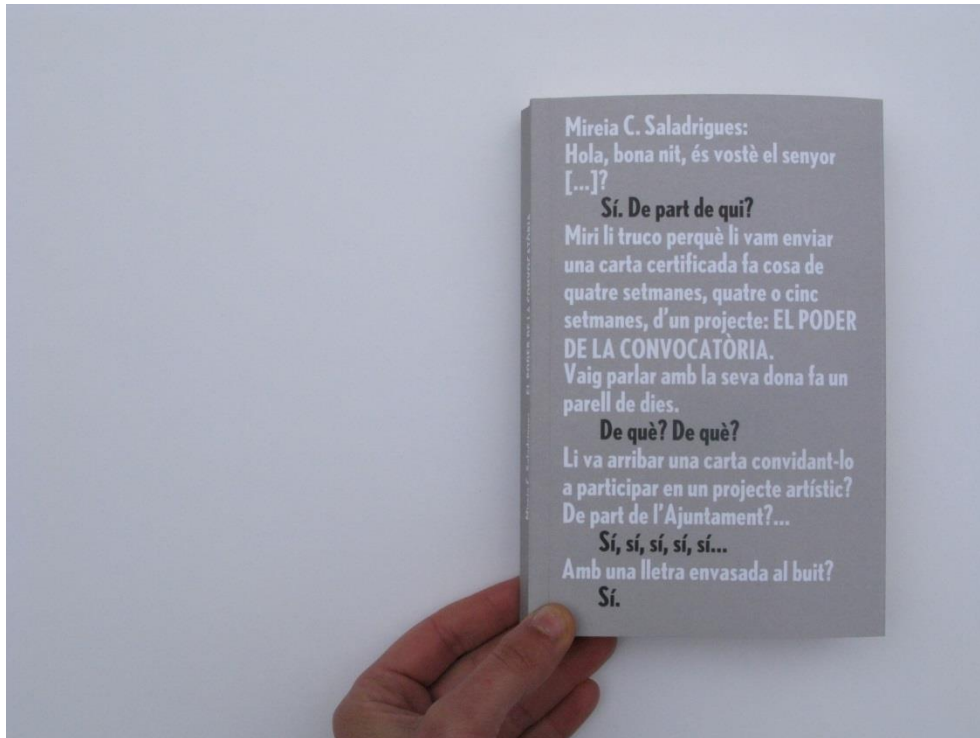 Mireia C. Saladrigues:
Hola, bona nit, és vostè el senyor
[...]?
Sí. De part de qui?
Miri li truco perquè li vam enviar
una carta certificada fa cosa de
quatre setmanes, quatre o cinc
setmanes, d'un projecte: EL PODER
DE LA CONVOCATÒRIA.
Vaig parlar amb la seva dona fa un
parell de dies.
De què? De què?
Li va arribar una carta convidant-lo
a participar en un projecte artístic?
De part de l'Ajuntament?...
Sí, sí, sí, sí, sí...
Amb una lletra envasada al buit?
Sí.
Mireia C. Saladrigues EL PODER DE LA CONVOCATÒRIA